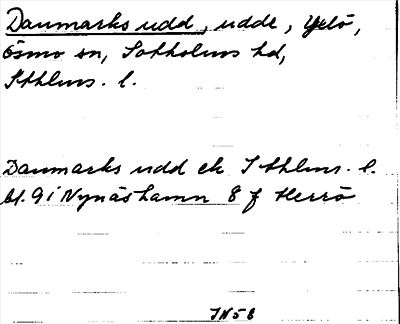 Danmarks udd, udde, Yxlö,
Ösmo sn, Sotholms hd,
Sthlms. l.
Danmarks udd ek Sthlms. l.
bl. 9 i Nynäshamn 8 f Herrö
IN58